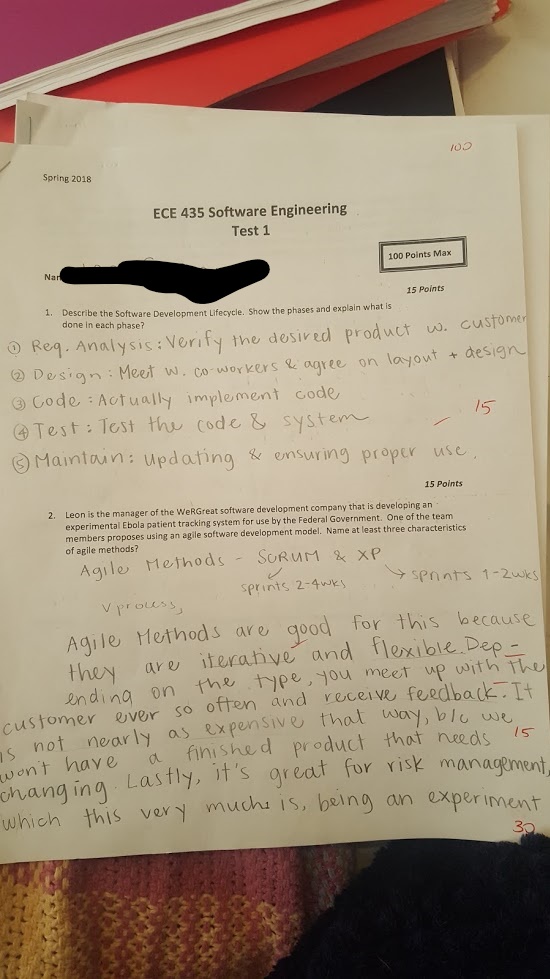 100
Spring 2018
ECE 435 Software Engineering
Test 1
100 Points Max
15 Points
1. Describe the Software Development Lifecycle. Show the phases and explain what is
done in each phase?
① Req. Analysis: Verify the desired product w. customer
② Design: Meet w. co-workers & agree on layout + design
③ Code: Actually implement code
④ Test: Test the code & system
15
⑤ Maintain: updating & ensuring proper use.
15 Points
2. Leon is the manager of the WeRGreat software development company that is developing an
experimental Ebola patient tracking system for use by the Federal Government. One of the team
members proposes using an agile software development model. Name at least three characteristics
of agile methods?
Agile Methods - SCRUM & XP
sprints 2-4wks
sprints 1-2wks
V process,
Agile Methods are good for this because
they are iterative and flexible. Dep-
ending on the type, you meet up with the
customer ever so often and receive feedback. It
is not nearly as expensive that way, b/c we
won't have a finished product that needs
15
changing. Lastly, it's great for risk management,
which this very much is, being an experiment
30